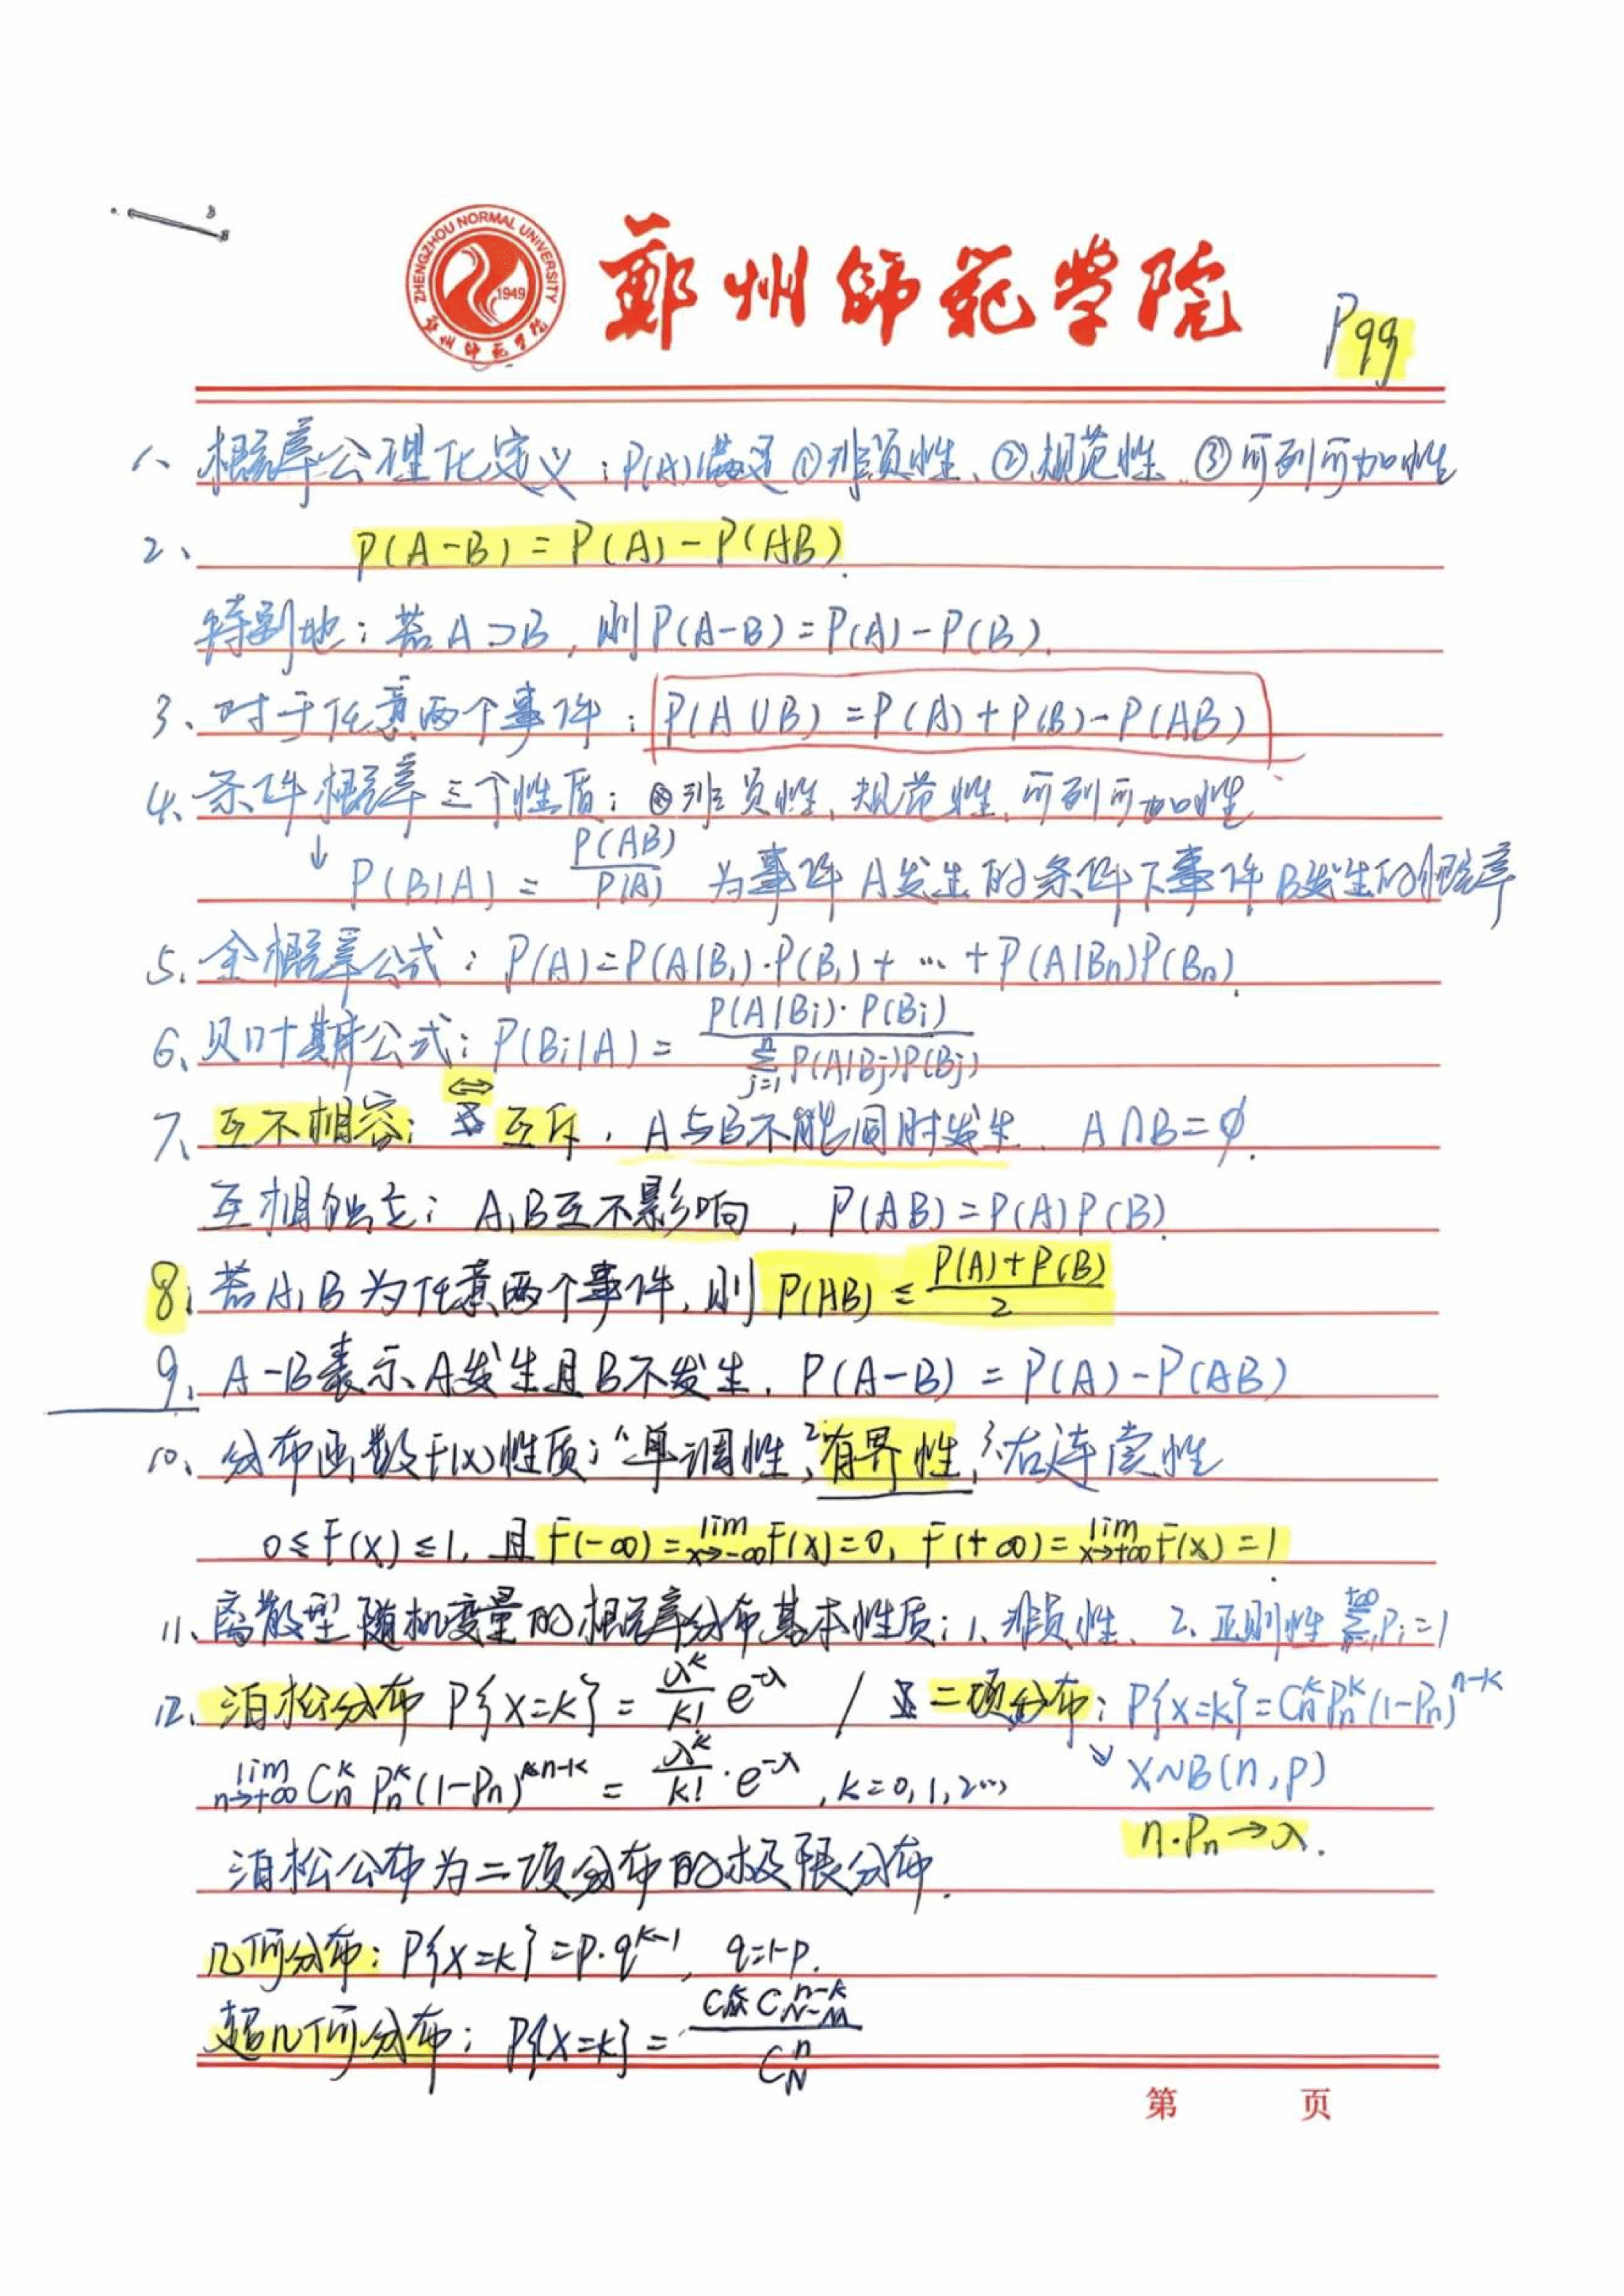 ZHENGZHOU NORMAL UNIVERSITY
1949
郑州师范学院
鄭州師範学院
P99
1、概率公理化定义：P(A)满足①非负性、②规范性、③可列可加性
2、P(A-B)=P(A)-P(AB).
特别地：若A⊃B，则P(A-B)=P(A)-P(B).
3、对于任意两个事件：P(A∪B)=P(A)+P(B)-P(AB)
4、条件概率三个性质：非负性、规范性、可列可加性
↓ P(B|A)=P(AB)/P(A) 为事件A发生的条件下事件B发生的概率
5、全概率公式：P(A)=P(A|B₁)·P(B₁)+…+P(A|Bn)P(Bn).
6、贝叶斯公式：P(Bi|A)=P(A|Bi)·P(Bi)/∑_{j=1}^{n}P(A|Bj)P(Bj)
7、互不相容：⇔互斥，A与B不能同时发生、A∩B=∅.
互相独立：A,B互不影响，P(AB)=P(A)P(B).
8、若A,B为任意两个事件，则P(AB)≤(P(A)+P(B))/2
9、A-B表示A发生且B不发生．P(A-B)=P(A)-P(AB)
10、分布函数F(x)性质：1、单调性，2、有界性，3、右连续性
0≤F(x)≤1，且F(-∞)=lim_{x→-∞}F(x)=0，F(+∞)=lim_{x→+∞}F(x)=1.
11、离散型随机变量的概率分布基本性质：1、非负性、2、正则性∑^{+∞}Pi=1
12、泊松分布 P{X=k}=λ^k/k! e^{-λ} / 二项分布：P{X=k}=C_n^k P_n^k(1-Pn)^{n-k}
lim_{n→+∞} C_n^k P_n^k(1-Pn)^{n-k}=λ^k/k!·e^{-λ}，k=0,1,2… ↘ X~B(n,p)
n·Pn→λ.
泊松公布为二项分布的极限分布.
几何分布：P{X=k}=p·q^{k-1}，q=1-p.
超几何分布：P{X=k}=C_M^k C_{N-M}^{n-k}/C_N^n
第 页